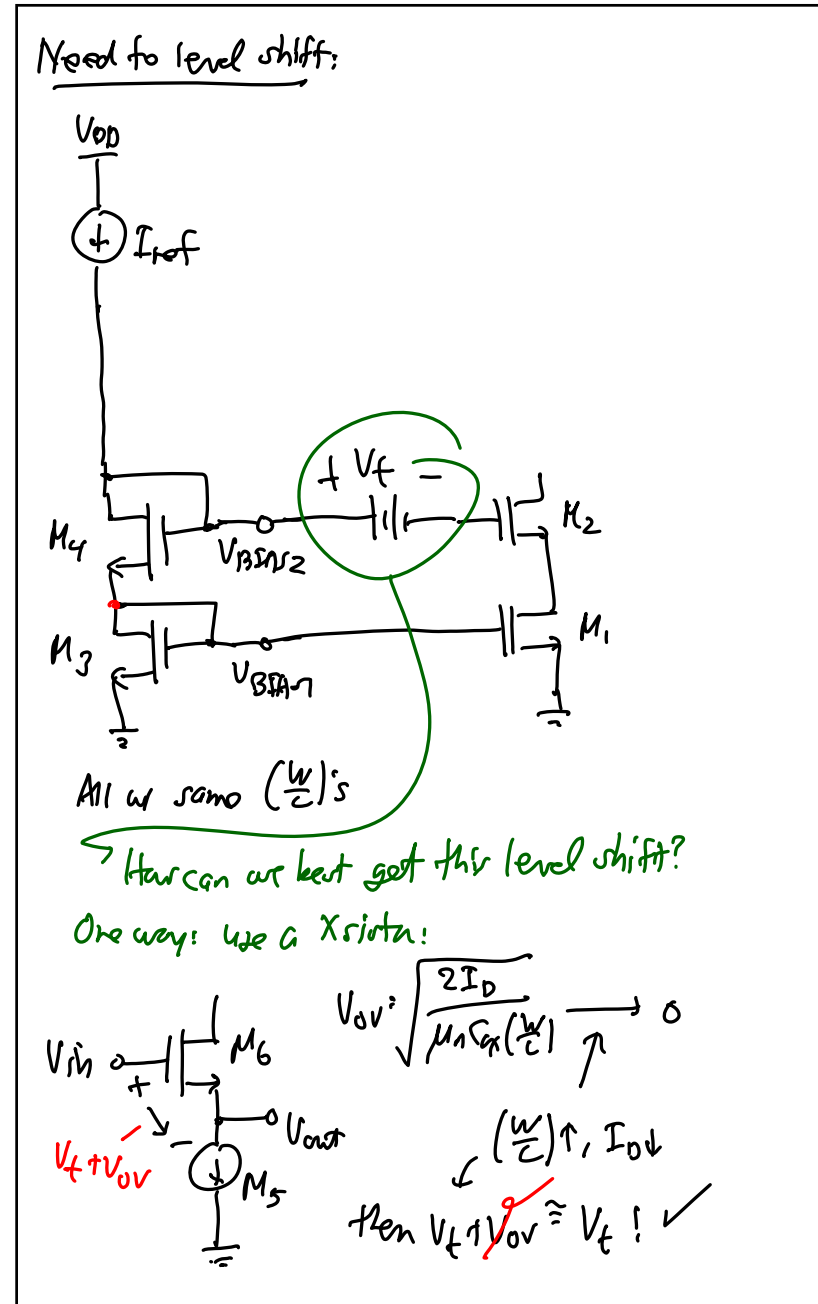 Need to level shift:
VDD
Iref
+ Vt −
M4
VBIAS2
M2
M3
VBIAS1
M1
All w/ same (W/L)'s
How can we best get this level shift?
One way: use a Xsistor!
Vov = √(2ID / μnCox(W/L)) → 0
Vin
M6
+
−
Vout
Vt + Vov
M5
(W/L)↑, ID↓
then Vt + Vov ≅ Vt ! ✓